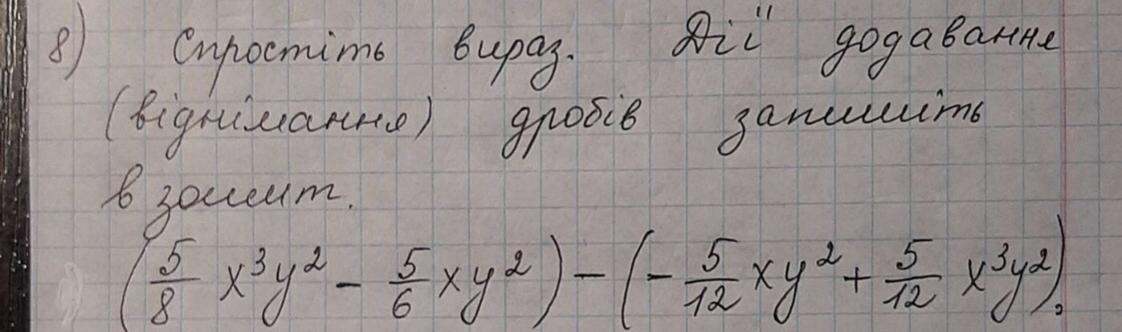 8) Спростіть вираз. Дії додавання
(віднімання) дробів запишіть
в зошит.
(5/8 x³y² - 5/6 xy²) - (- 5/12 xy² + 5/12 x³y²).